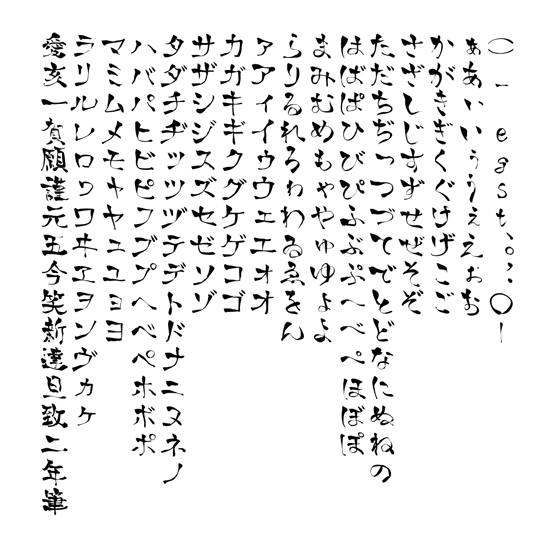 （）-egst、。，．○ー
ぁあぃいぅうぇえぉお
かがきぎくぐけげこご
さざしじすずせぜそぞ
ただちぢっつづてでとどなにぬねの
はばぱひびぴふぶぷへべぺほぼぽ
まみむめもゃやゅゆょよ
らりるれろゎわゐゑをん
ァアィイゥウェエォオ
カガキギクグケゲコゴ
サザシジスズセゼソゾ
タダチヂッツヅテデトドナニヌネノ
ハバパヒビピフブプヘベペホボポ
マミムメモャヤュユョヨ
ラリルレロヮワヰヱヲンヴヵヶ
愛亥一賀願謹元五今笑新達旦致二年筆